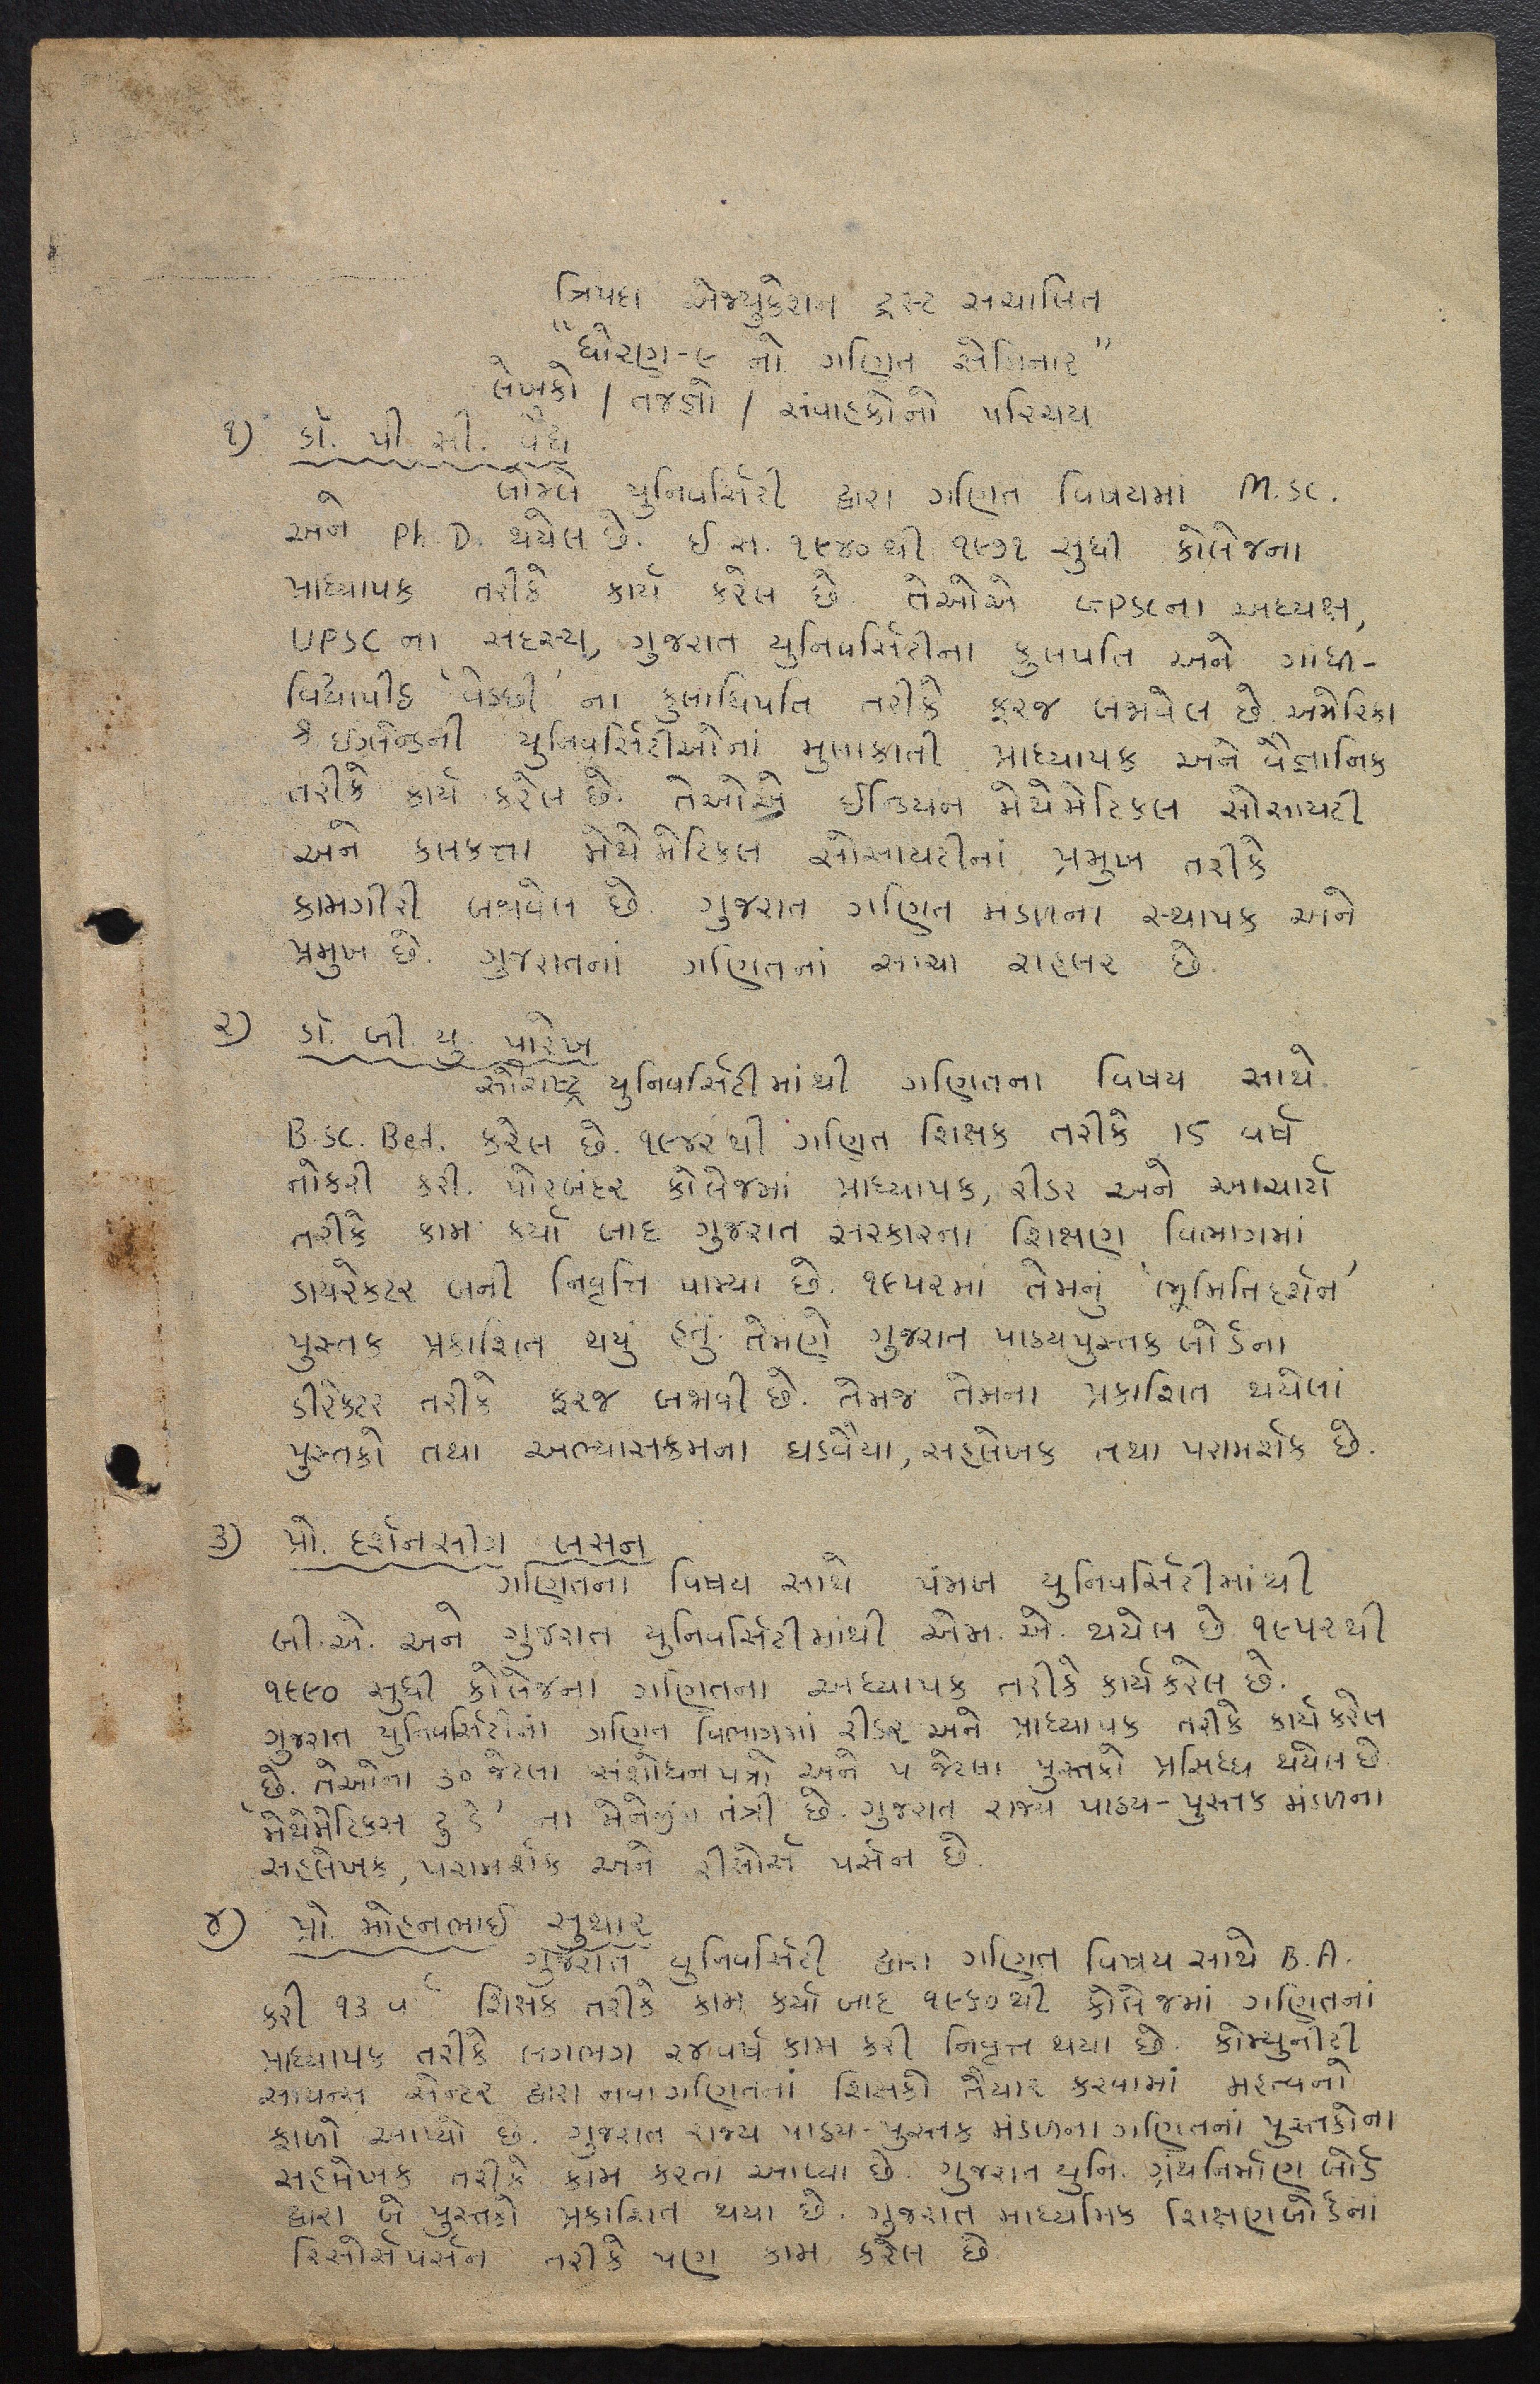 ત્રિપદા એજ્યુકેશન ટ્રસ્ટ સંચાલિત
"ધોરણ-૯ નો ગણિત સેમિનાર"
લેખકો / તજજ્ઞો / સંવાહકોનો પરિચય
૧) ડૉ. પી. સી. વૈદ્ય
બોમ્બે યુનિવર્સિટી દ્વારા ગણિત વિષયમાં M.Sc.
અને Ph.D. થયેલ છે. ઈ.સ. ૧૯૪૦થી ૧૯૭૧ સુધી કોલેજના
પ્રાધ્યાપક તરીકે કાર્ય કરેલ છે. તેઓએ GPSCના અધ્યક્ષ,
UPSC ના સદસ્ય, ગુજરાત યુનિવર્સિટીના કુલપતિ અને ગાંધી-
વિદ્યાપીઠ 'વેડછી' ના કુલાધિપતિ તરીકે ફરજ બજાવેલ છે. અમેરિકા
ઈંગ્લેન્ડની યુનિવર્સિટીઓનાં મુલાકાતી પ્રાધ્યાપક અને વૈજ્ઞાનિક
તરીકે કાર્ય કરેલ છે. તેઓએ ઈન્ડિયન મેથેમેટિકલ સોસાયટી
અને કલકત્તા મેથેમેટિકલ સોસાયટીનાં પ્રમુખ તરીકે
કામગીરી બજાવેલ છે. ગુજરાત ગણિત મંડળના સ્થાપક અને
પ્રમુખ છે. ગુજરાતનાં ગણિતનાં સાચા રાહબર છે.
૨) ડૉ. બી. યુ. પારેખ
સૌરાષ્ટ્ર યુનિવર્સિટીમાંથી ગણિતના વિષય સાથે
B.Sc. Bed. કરેલ છે. ૧૯૪૨થી ગણિત શિક્ષક તરીકે ૧૬ વર્ષ
નોકરી કરી. પોરબંદર કોલેજમાં પ્રાધ્યાપક, રીડર અને આચાર્ય
તરીકે કામ કર્યા બાદ ગુજરાત સરકારના શિક્ષણ વિભાગમાં
ડાયરેકટર બની નિવૃત્તિ પામ્યા છે. ૧૯૫૨માં તેમનું 'ભૂમિતિદર્શન'
પુસ્તક પ્રકાશિત થયું હતું. તેમણે ગુજરાત પાઠ્યપુસ્તક બોર્ડના
ડીરેકટર તરીકે ફરજ બજાવી છે. તેમજ તેમના પ્રકાશિત થયેલાં
પુસ્તકો તથા અભ્યાસક્રમના ઘડવૈયા, સહલેખક તથા પરામર્શક છે.
૩) પ્રો. દર્શનસીંગ બસન
ગણિતના વિષય સાથે પંજાબ યુનિવર્સિટીમાંથી
બી.એ. અને ગુજરાત યુનિવર્સિટીમાંથી એમ.એ. થયેલ છે. ૧૯૫૨થી
૧૯૯૦ સુધી કોલેજના ગણિતના અધ્યાપક તરીકે કાર્ય કરેલ છે.
ગુજરાત યુનિવર્સિટીનાં ગણિત વિભાગમાં રીડર અને પ્રાધ્યાપક તરીકે કાર્ય કરેલ
છે. તેઓના ૩૦ જેટલા સંશોધનપત્રો અને ૫ જેટલા પુસ્તકો પ્રસિધ્ધ થયેલ છે.
'મેથેમેટિક્સ ટુડે' ના મેનેજીંગ તંત્રી છે. ગુજરાત રાજ્ય પાઠ્ય-પુસ્તક મંડળના
સહલેખક, પરામર્શક અને રીસોર્સ પર્સન છે.
૪) પ્રો. મોહનભાઈ સુથાર
ગુજરાત યુનિવર્સિટી દ્વારા ગણિત વિષય સાથે B.A.
કરી ૧૩ વર્ષ શિક્ષક તરીકે કામ કર્યા બાદ ૧૯૬૦થી કોલેજમાં ગણિતનાં
પ્રાધ્યાપક તરીકે લગભગ ૨૪ વર્ષ કામ કરી નિવૃત્ત થયા છે. કોમ્યુનીટી
સાયન્સ સેન્ટર દ્વારા નવા ગણિતનાં શિક્ષકો તૈયાર કરવામાં મહત્વનો
ફાળો આપ્યો છે. ગુજરાત રાજ્ય પાઠ્ય-પુસ્તક મંડળના ગણિતનાં પુસ્તકોના
સહલેખક તરીકે કામ કરતાં આવ્યા છે. ગુજરાત યુનિ. ગ્રંથનિર્માણ બોર્ડ
દ્વારા બે પુસ્તકો પ્રકાશિત થયા છે. ગુજરાત માધ્યમિક શિક્ષણબોર્ડનાં
રિસોર્સપર્સન તરીકે પણ કામ કરેલ છે.